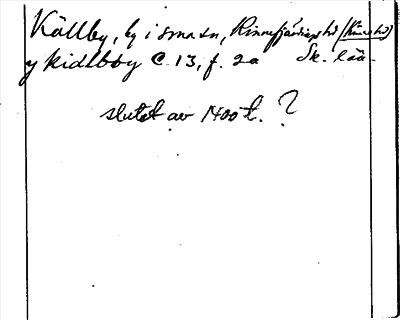 Källby, by i smn sn, Kinnefjärdings hd (Kinne hd)
y kidlboy C 13, f. 2a Sk. lää.
slutet av 1400 t. ?